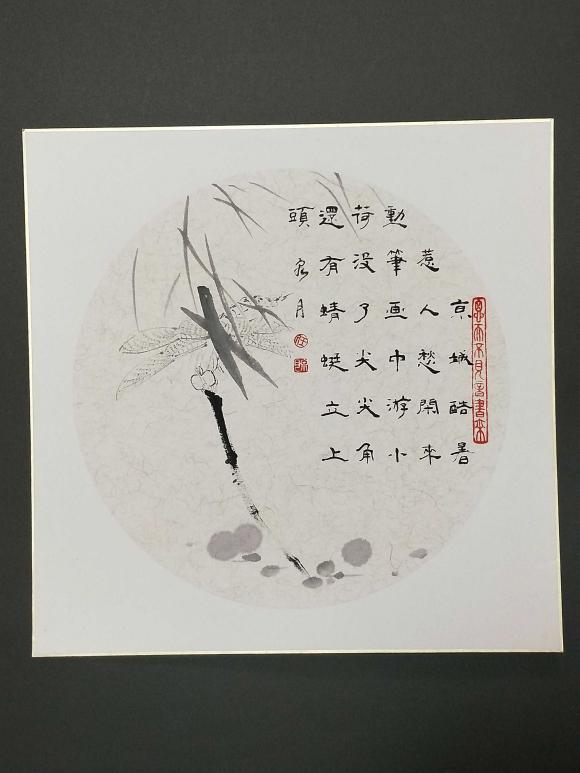 京城酷暑
惹人愁閑來
動筆画中游小
荷没了尖尖角
還有蜻蜓立上
頭
月